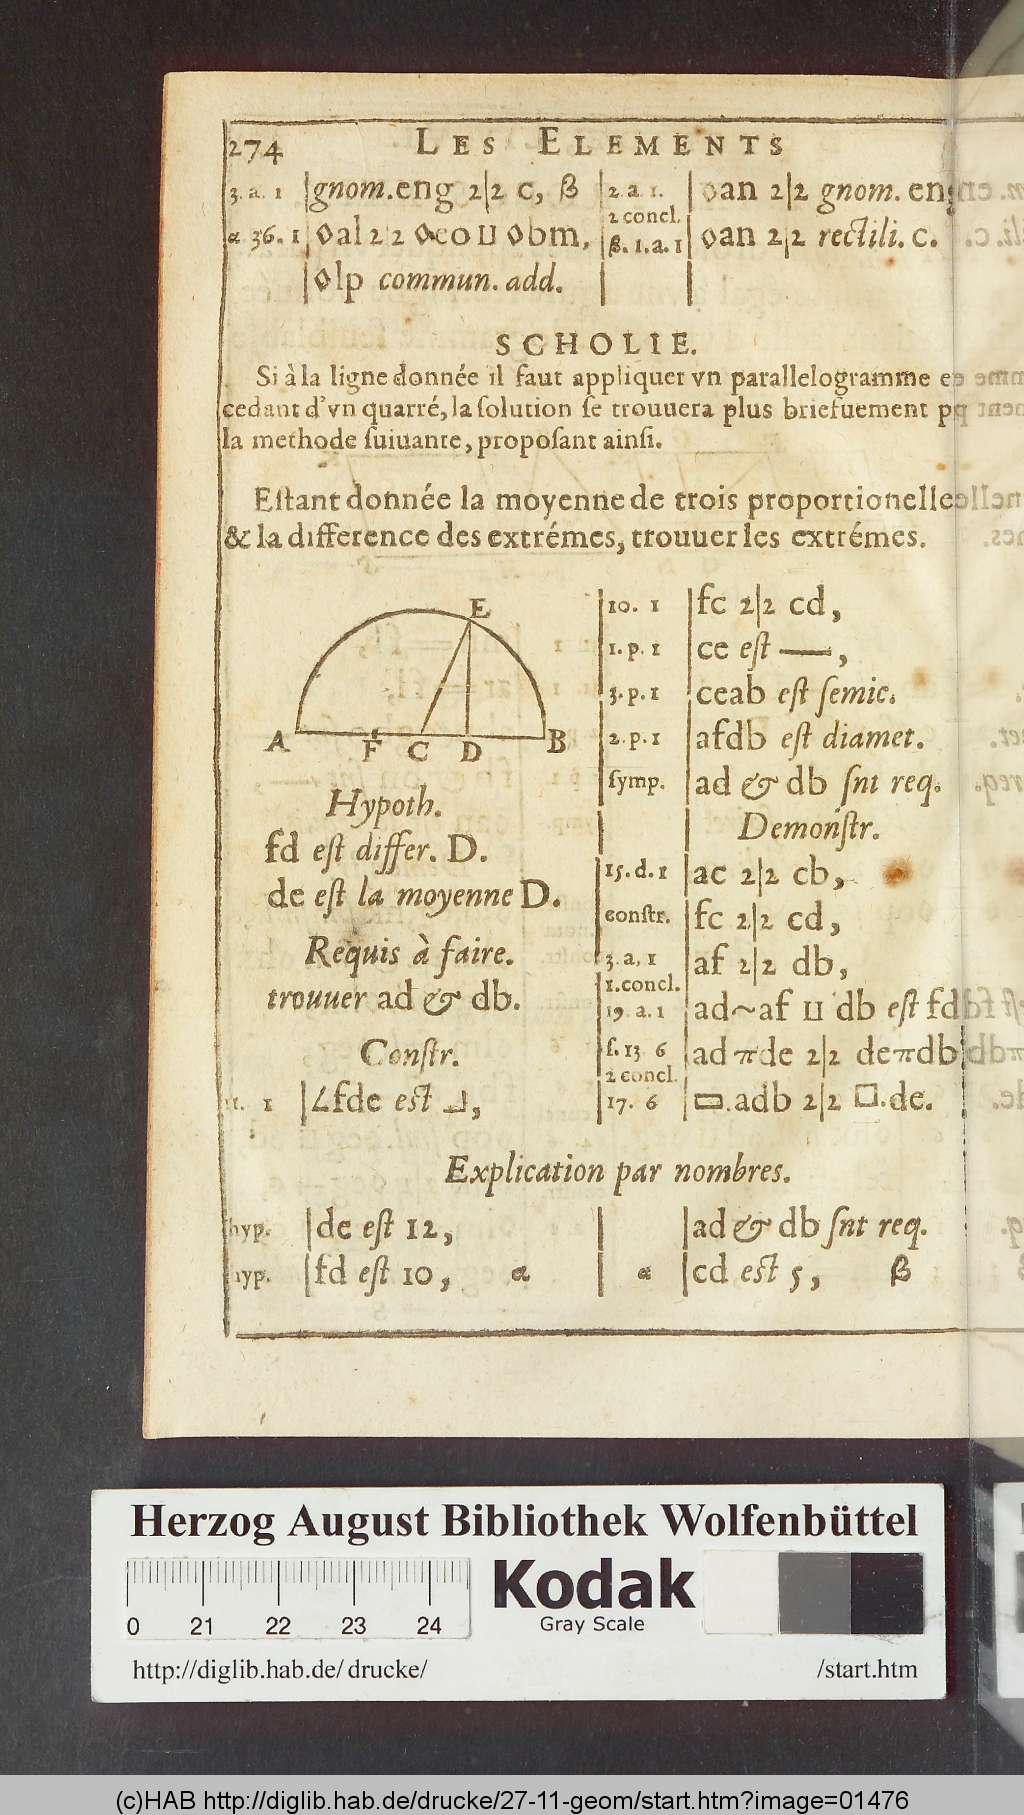 274 LES ELEMENTS
3. a. 1 | gnom.eng 2|2 c, β | 2 a 1. | ◊an 2|2 gnom. eng
2 concl.
α 36. 1 | ◊al 2 2 ◊co ⊔ ◊bm, | β. 1. a. 1 | ◊an 2|2 rectili. c.
| ◊lp commun. add. | |
SCHOLIE.
Si à la ligne donnée il faut appliquer vn parallelogramme
cedant d'vn quarré, la ſolution ſe trouuera plus briefuement
la methode ſuiuante, propoſant ainſi.
Eſtant donnée la moyenne de trois proportionelle
& la difference des extrémes, trouuer les extrémes.
E
A F C D B
Hypoth.
fd eſt differ. D.
de eſt la moyenne D.
Requis à faire.
trouuer ad & db.
Conſtr.
11. 1 | ∠fde eſt ⅃,
10. 1 | fc 2|2 cd,
1. p. 1 | ce eſt —,
3. p. 1 | ceab eſt ſemic.
2. p. 1 | afdb eſt diamet.
ſymp. | ad & db ſnt req.
Demonſtr.
15. d. 1 | ac 2|2 cb,
conſtr. | fc 2|2 cd,
3. a, 1 | af 2|2 db,
1. concl.
19. a. 1 | ad~af ⊔ db eſt fd
ſ. 13 6 | ad π de 2|2 de π db
2 concl.
17. 6 | ▭.adb 2|2 □.de.
Explication par nombres.
hyp. | de eſt 12, | | ad & db ſnt req.
hyp. | fd eſt 10, α | α | cd eſt 5, β
Herzog August Bibliothek Wolfenbüttel
0 21 22 23 24
Kodak
Gray Scale
http://diglib.hab.de/ drucke/ /start.htm
(c)HAB http://diglib.hab.de/drucke/27-11-geom/start.htm?image=01476